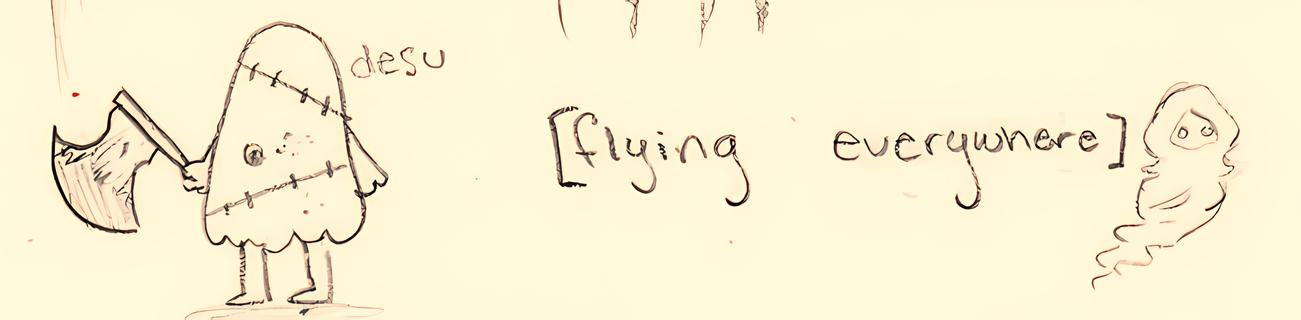 desu
[flying everywhere]